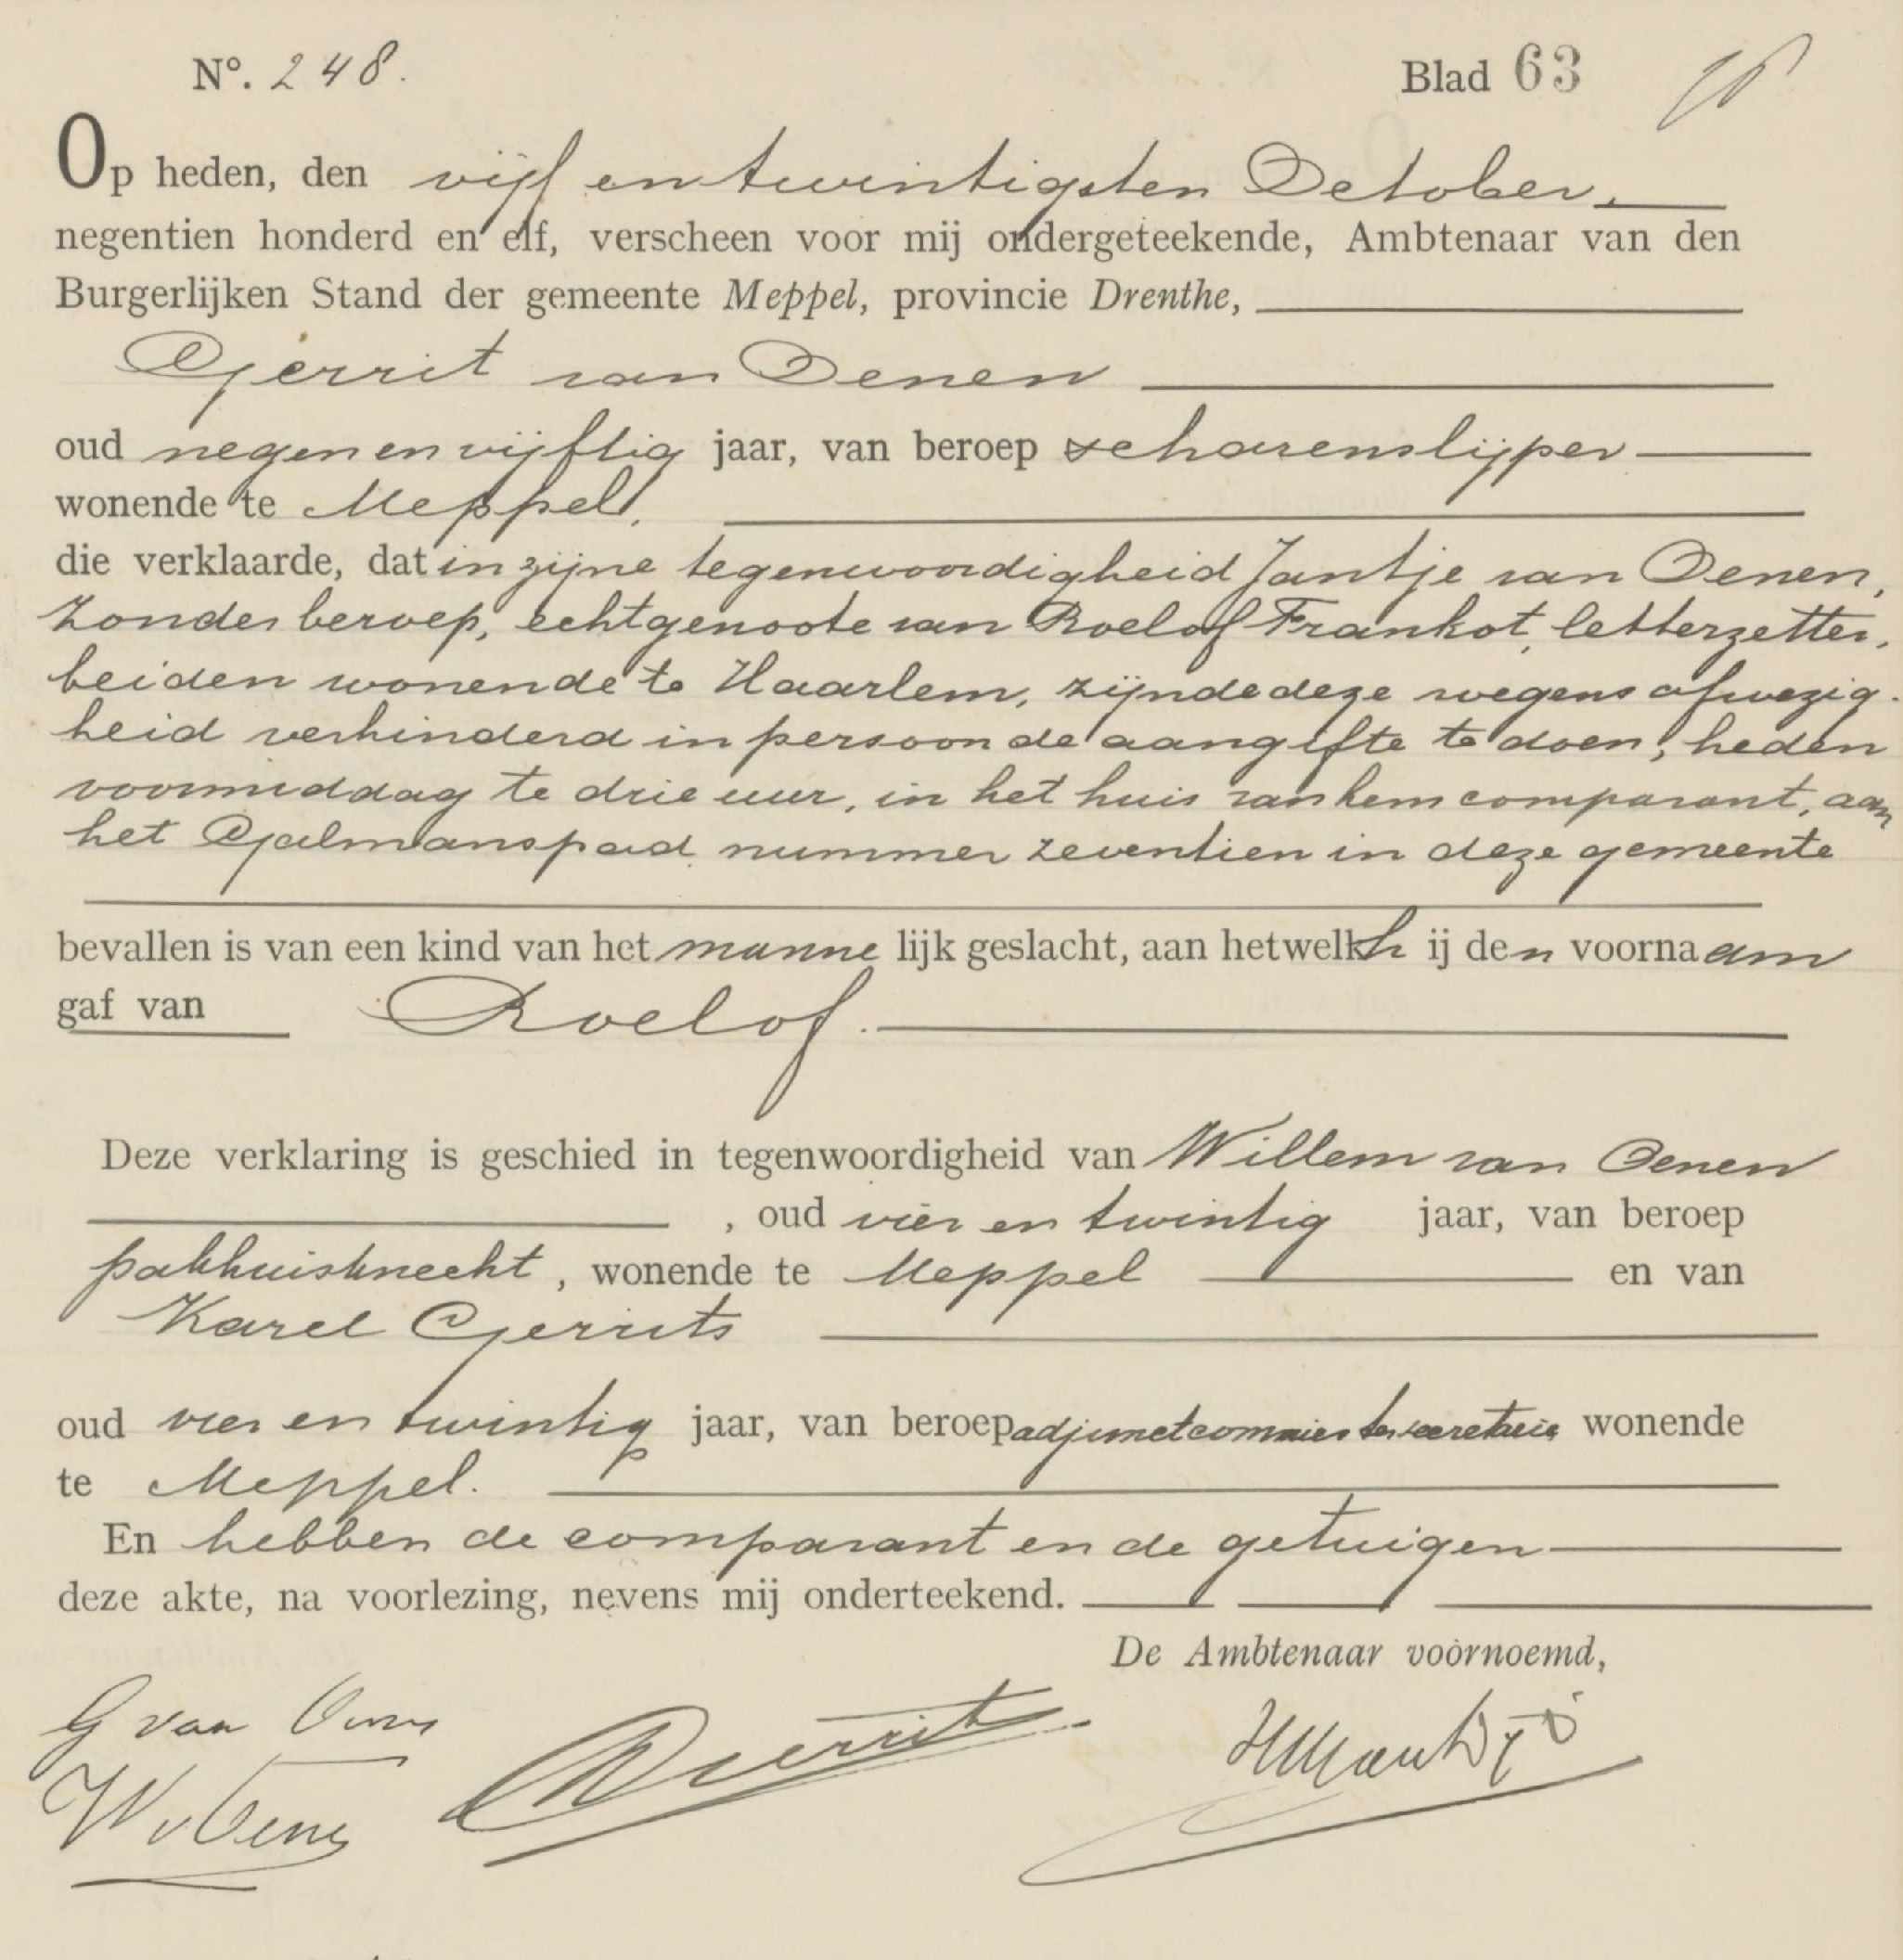 Nº. 248. Blad 63
Op heden, den vijf en twintigsten October,
negentien honderd en elf, verscheen voor mij ondergeteekende, Ambtenaar van den
Burgerlijken Stand der gemeente Meppel, provincie Drenthe,
Gerrit van Oenen
oud negen en vijftig jaar, van beroep scharenslijper
wonende te Meppel,
die verklaarde, dat in zijne tegenwoordigheid Jantje van Oenen,
zonder beroep, echtgenoote van Roelof Frankot, letterzetter,
beiden wonende te Haarlem, zijnde deze wegens afwezig-
heid verhinderd in persoon de aangifte te doen, heden
voormiddag te drie uur, in het huis van hem comparant, aan
het Galmanspad nummer zeventien in deze gemeente
bevallen is van een kind van het mannelijk geslacht, aan hetwelk hij den voornaam
gaf van Roelof.
Deze verklaring is geschied in tegenwoordigheid van Willem van Oenen
, oud vier en twintig jaar, van beroep
pakhuisknecht, wonende te Meppel en van
Karel Gerrits
oud vier en twintig jaar, van beroep adjunctcommies ter secretarie wonende
te Meppel.
En hebben de comparant en de getuigen
deze akte, na voorlezing, nevens mij onderteekend.
De Ambtenaar voornoemd,
G van Oenen
W v Oenen